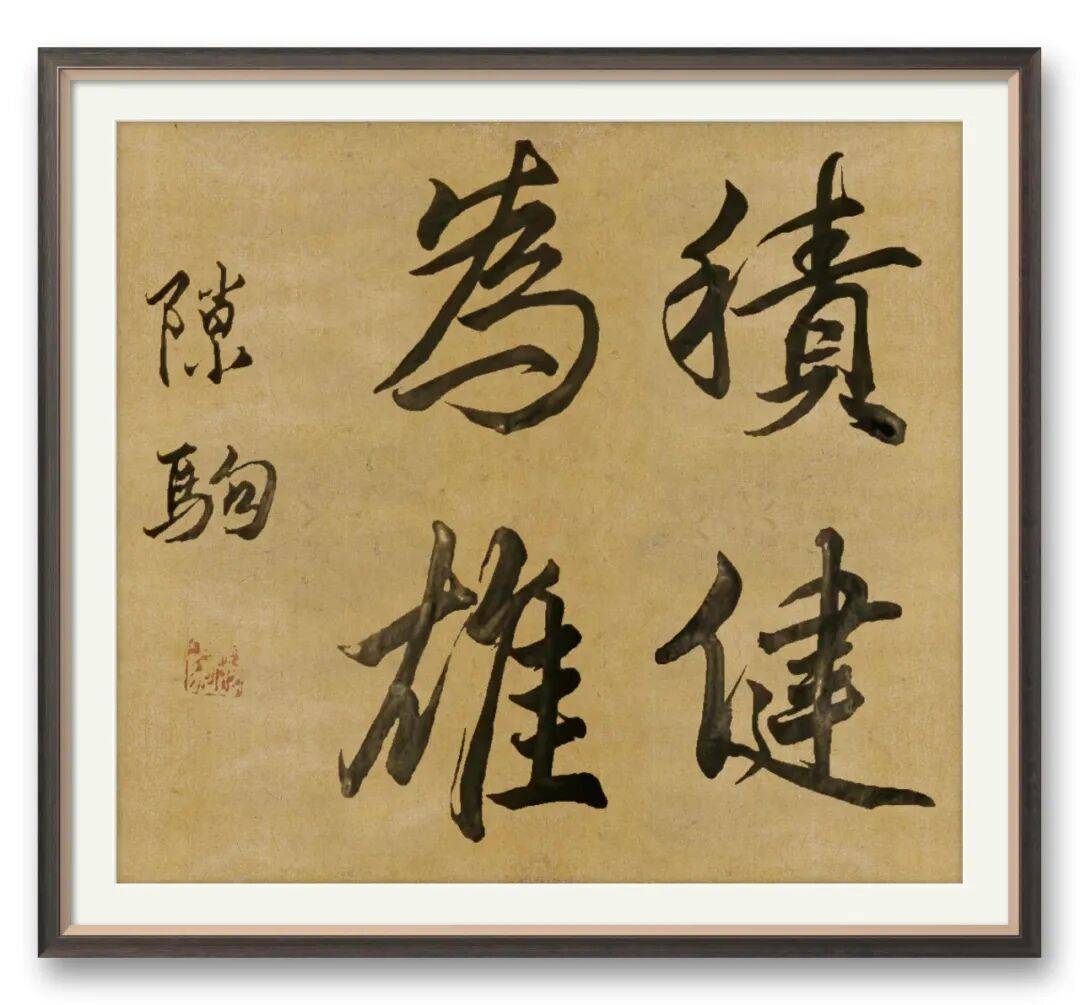 積健
為雄
隙駒